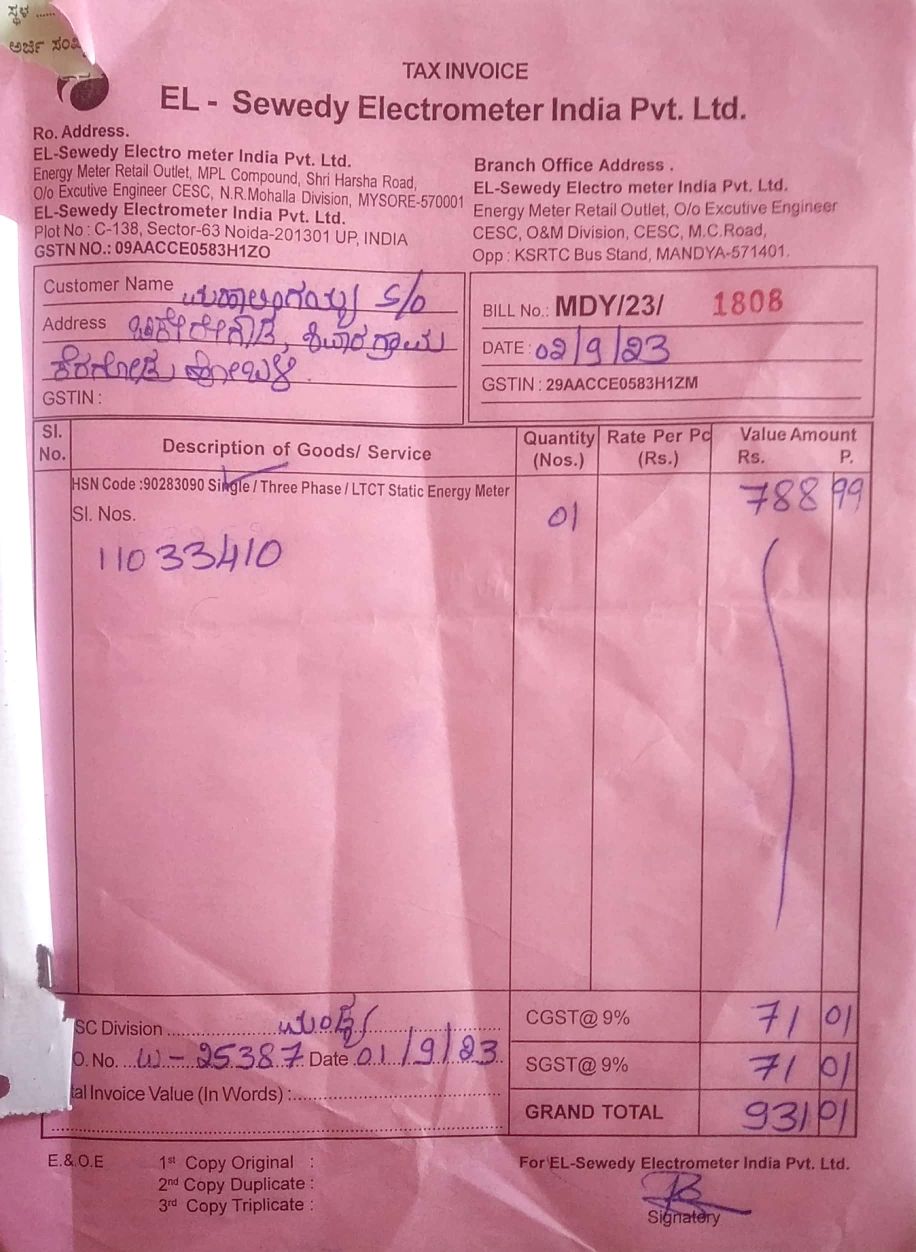 ಸ್ಥಳ ......
ಅರ್ಜಿ
TAX INVOICE
EL - Sewedy Electrometer India Pvt. Ltd.
Ro. Address.
EL-Sewedy Electro meter India Pvt. Ltd.
Energy Meter Retail Outlet, MPL Compound, Shri Harsha Road,
O/o Excutive Engineer CESC, N.R.Mohalla Division, MYSORE-570001
EL-Sewedy Electrometer India Pvt. Ltd.
Plot No : C-138, Sector-63 Noida-201301 UP, INDIA
GSTN NO.: 09AACCE0583H1ZO
Branch Office Address .
EL-Sewedy Electro meter India Pvt. Ltd.
Energy Meter Retail Outlet, O/o Excutive Engineer
CESC, O&M Division, CESC, M.C.Road,
Opp : KSRTC Bus Stand, MANDYA-571401.
Customer Name S/o
Address
GSTIN :
BILL No.: MDY/23/ 1808
DATE : 02/9/23
GSTIN : 29AACCE0583H1ZM
Sl. No. Description of Goods/ Service Quantity (Nos.) Rate Per Pc (Rs.) Value Amount Rs. P.
HSN Code :90283090 Single / Three Phase / LTCT Static Energy Meter 01 788 99
Sl. Nos.
11033410
SC Division ಮಂಡ್ಯ
O. No. W-25387 Date 01/9/23
tal Invoice Value (In Words) :
CGST@ 9% 71 01
SGST@ 9% 71 01
GRAND TOTAL 931 01
E.& O.E
1st Copy Original :
2nd Copy Duplicate :
3rd Copy Triplicate :
For EL-Sewedy Electrometer India Pvt. Ltd.
Signatory